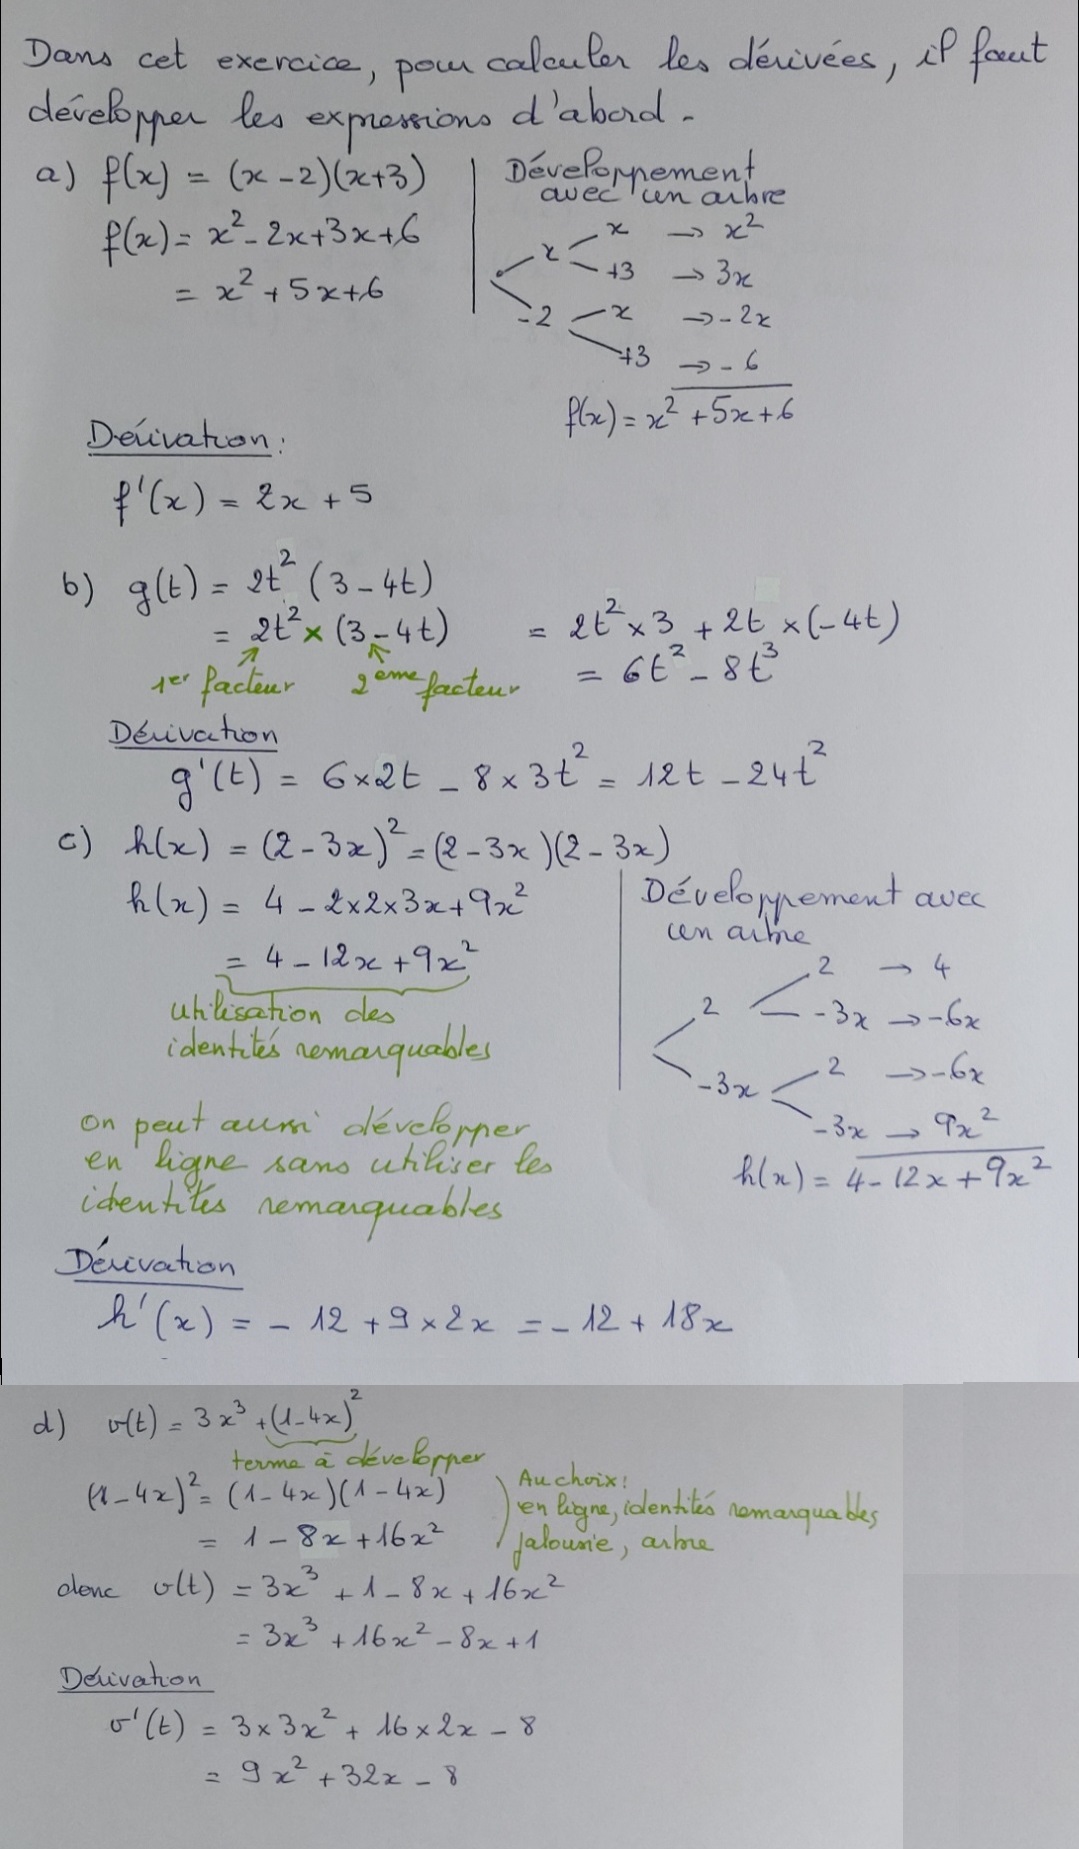 Dans cet exercice, pour calculer les dérivées, il faut
développer les expressions d'abord.
a) f(x) = (x-2)(x+3)
f(x) = x² - 2x + 3x + 6
= x² + 5x + 6
Développement
avec un arbre
x
x → x²
+3 → 3x
-2
x → -2x
+3 → -6
f(x) = x² + 5x + 6
Dérivation :
f'(x) = 2x + 5
b) g(t) = 2t² (3 - 4t)
= 2t² × (3 - 4t) = 2t² × 3 + 2t × (-4t)
1er facteur 2ème facteur = 6t² - 8t³
Dérivation
g'(t) = 6 × 2t - 8 × 3t² = 12t - 24t²
c) h(x) = (2 - 3x)² = (2 - 3x)(2 - 3x)
h(x) = 4 - 2×2×3x + 9x²
= 4 - 12x + 9x²
utilisation des
identités remarquables
on peut aussi développer
en ligne sans utiliser les
identités remarquables
Développement avec
un arbre
2
2 → 4
-3x → -6x
-3x
2 → -6x
-3x → 9x²
h(x) = 4 - 12x + 9x²
Dérivation
h'(x) = - 12 + 9 × 2x = - 12 + 18x
d) v(t) = 3x³ + (1-4x)²
terme à développer
(1-4x)² = (1-4x)(1-4x)
= 1 - 8x + 16x²
Au choix :
en ligne, identités remarquables
jalousie, arbre
donc v(t) = 3x³ + 1 - 8x + 16x²
= 3x³ + 16x² - 8x + 1
Dérivation
v'(t) = 3 × 3x² + 16 × 2x - 8
= 9x² + 32x - 8